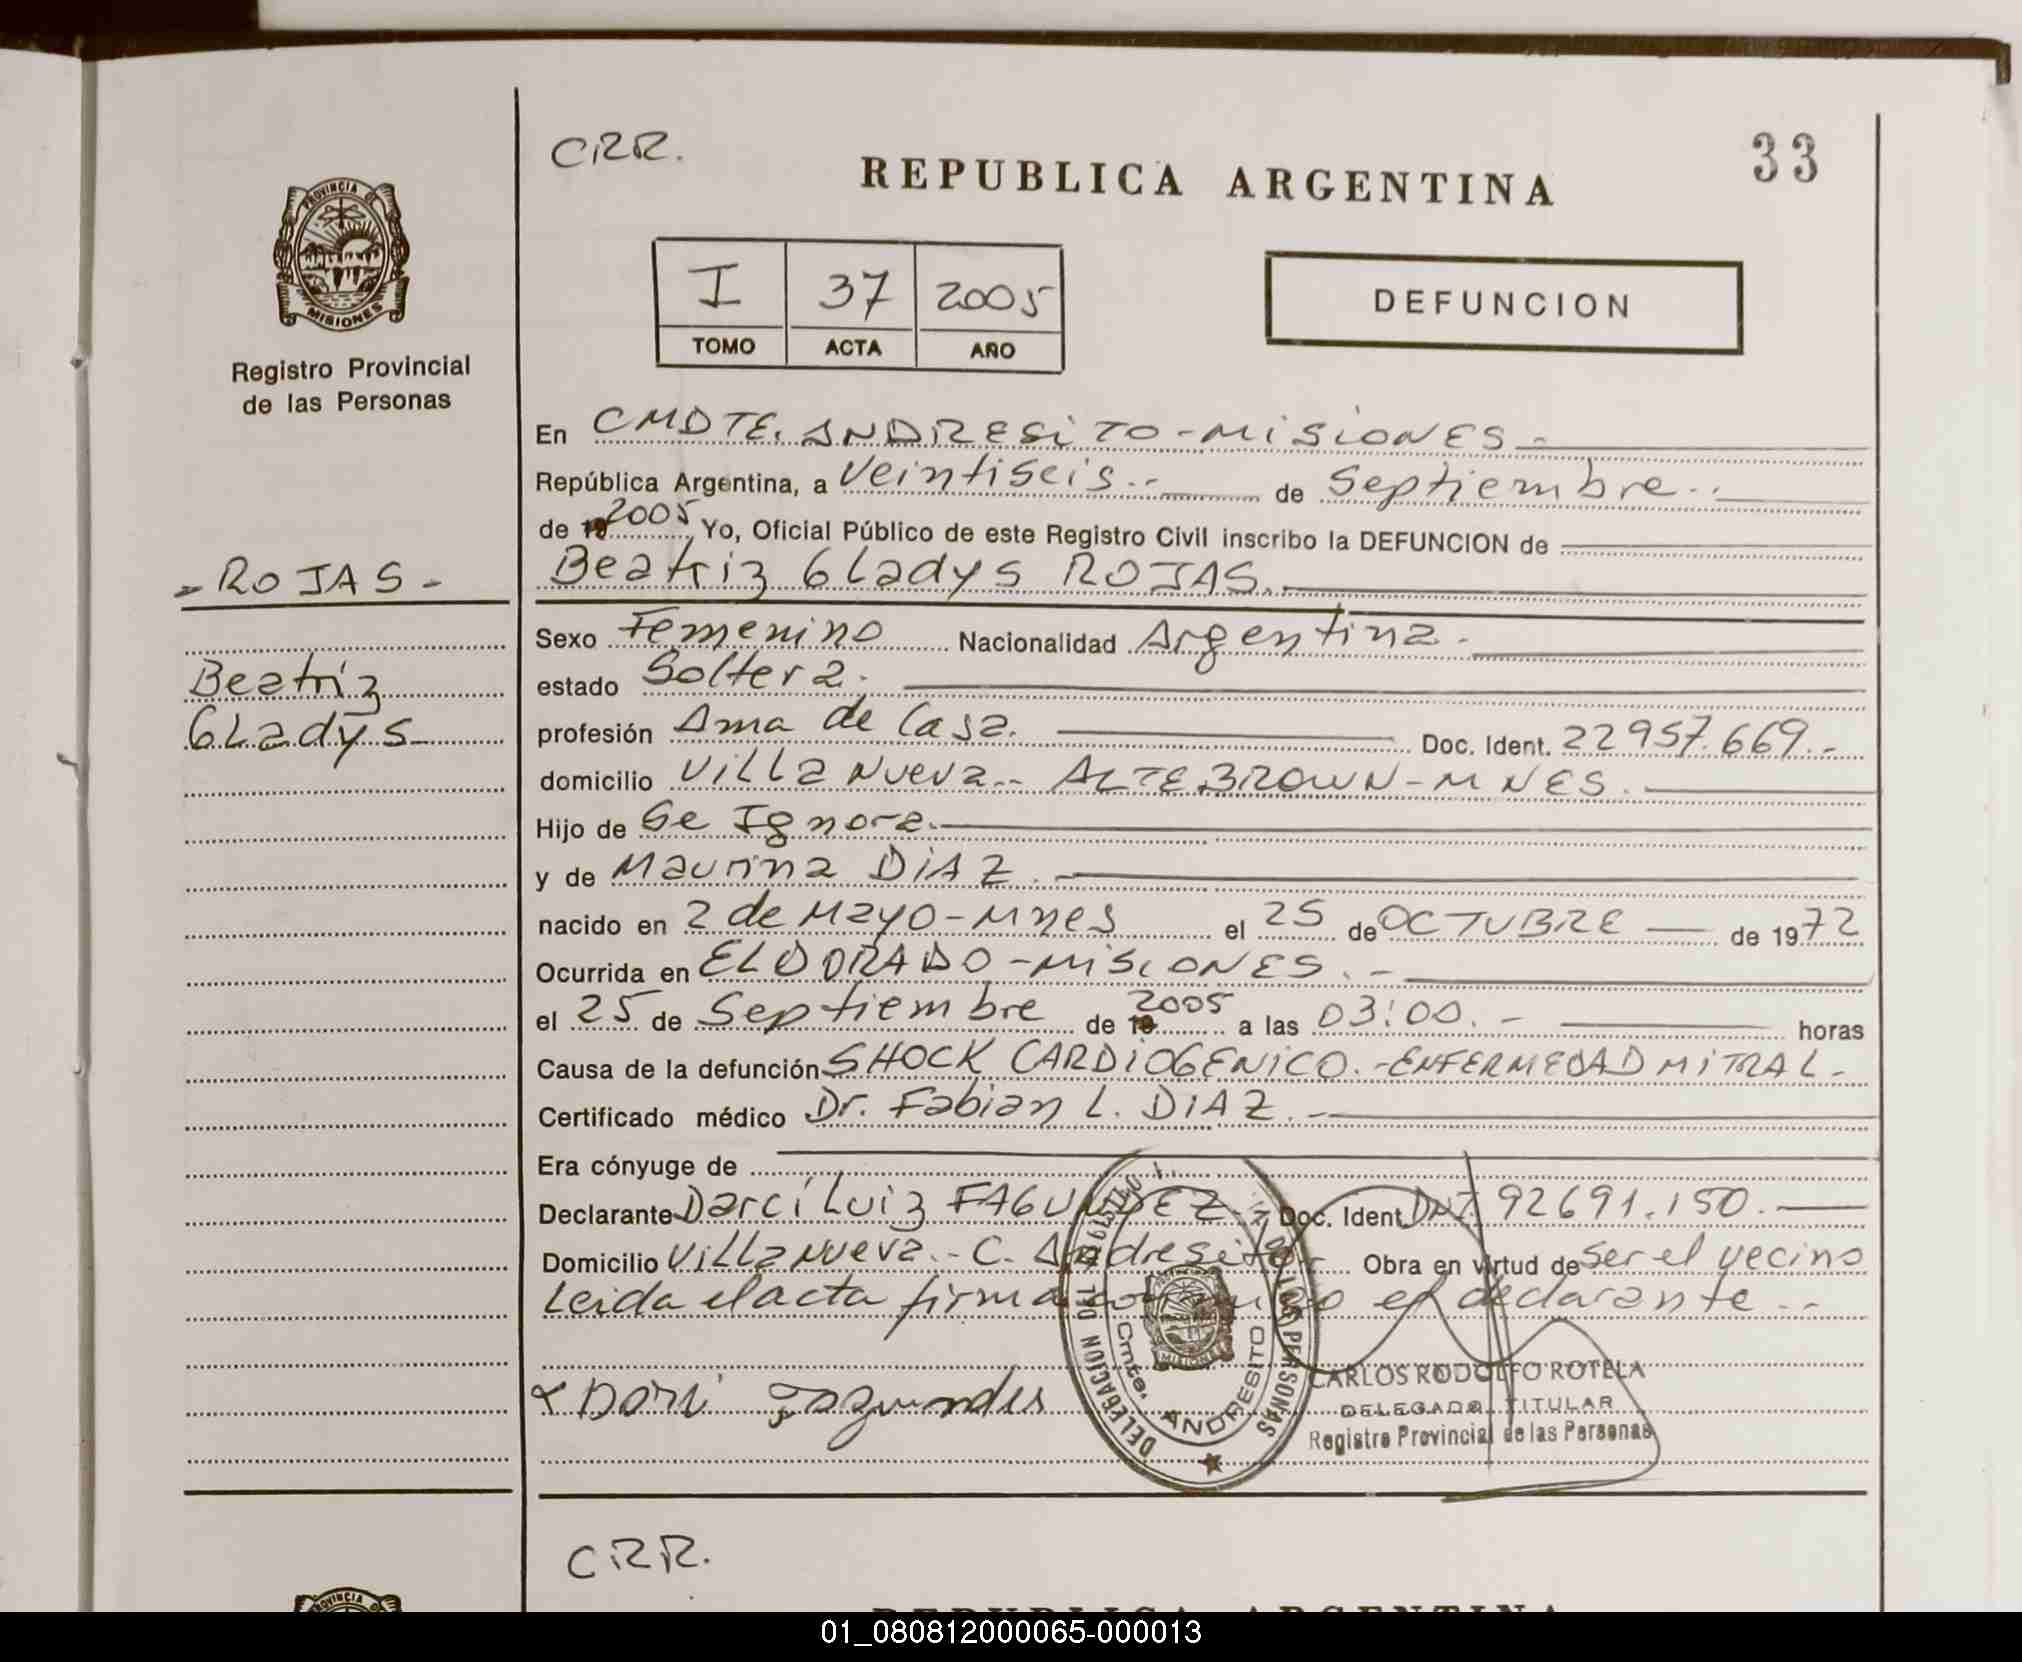 CRR.
33
REPUBLICA ARGENTINA
PROVINCIA DE
MISIONES
Registro Provincial
de las Personas
I 37 2005
TOMO ACTA AÑO
DEFUNCION
En CMDTE. ANDRESITO - MISIONES -
República Argentina, a Veintiseis.- de Septiembre..
de 19 2005 Yo, Oficial Público de este Registro Civil inscribo la DEFUNCION de
- ROJAS -
Beatriz GLadys ROJAS.
Sexo Femenino Nacionalidad Argentina.
Beatriz
estado Soltera.
GLadys
profesión Ama de Casa. Doc. Ident. 22957.669.-
domicilio Villa Nueva.- ALTE.BROWN-MNES.
Hijo de Se Ignora.
y de Maurina DIAZ.
nacido en 2 de Mayo-Mnes el 25 de OCTUBRE de 1972
Ocurrida en ELDORADO-MISIONES.-
el 25 de Septiembre de 19 2005 a las 03:00.- horas
Causa de la defunción SHOCK CARDIOGENICO.-ENFERMEDAD MITRAL-
Certificado médico Dr. Fabian L. DIAZ.-
Era cónyuge de
Declarante Darci Luiz FAGUNDEZ.- Doc. Ident. DNI. 92691.150.
Domicilio Villa Nueva.- C. Andresito.- Obra en virtud de ser el vecino
Leida el acta firma conmigo el declarante..
DELEGACION DEL REGISTRO PROVINCIAL DE LAS PERSONAS
Cmte. ANDRESITO
MISIONES
CARLOS RODOLFO ROTELA
DELEGADO TITULAR
Registro Provincial de las Personas
CRR.
PROVINCIA DE
REPUBLICA ARGENTINA
01_080812000065-000013